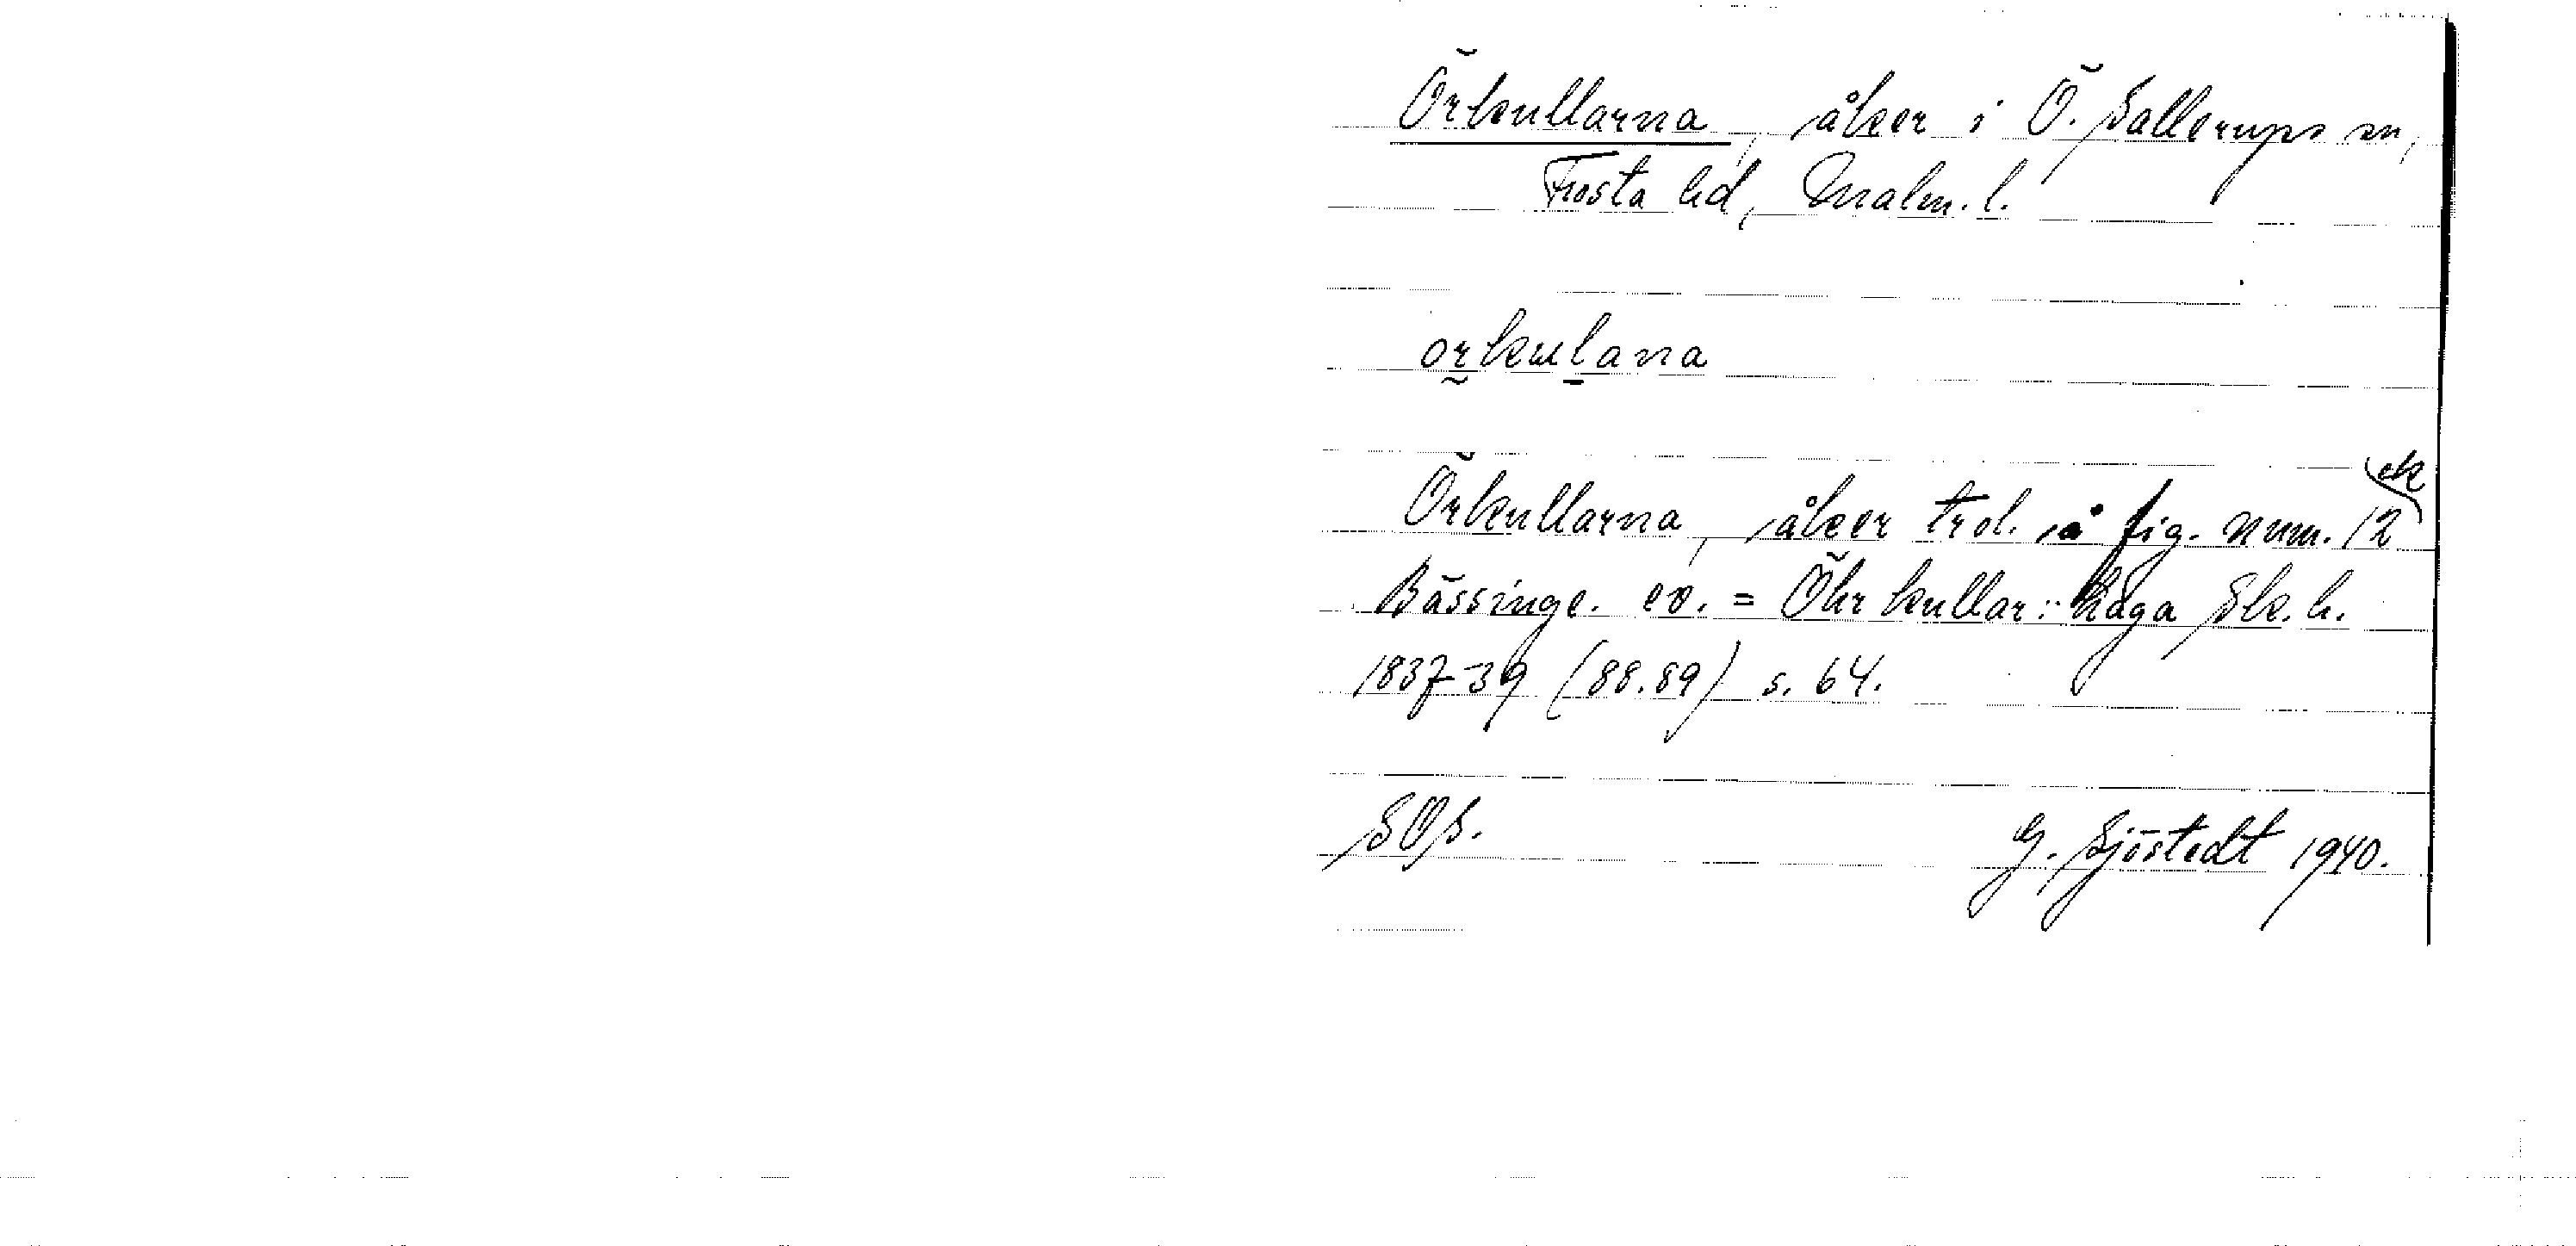 Örkullarna, åker i Ö. Sallerups sn,
Frosta hd, Malm. l.
orkulana
Örkullarna, åker trol. å fig. num. 12
Bässinge. ev. = Öhr kullar: haga Sk. h.
1837-39 (88.89) s. 64.
SOS.
G. Sjöstedt 1940.